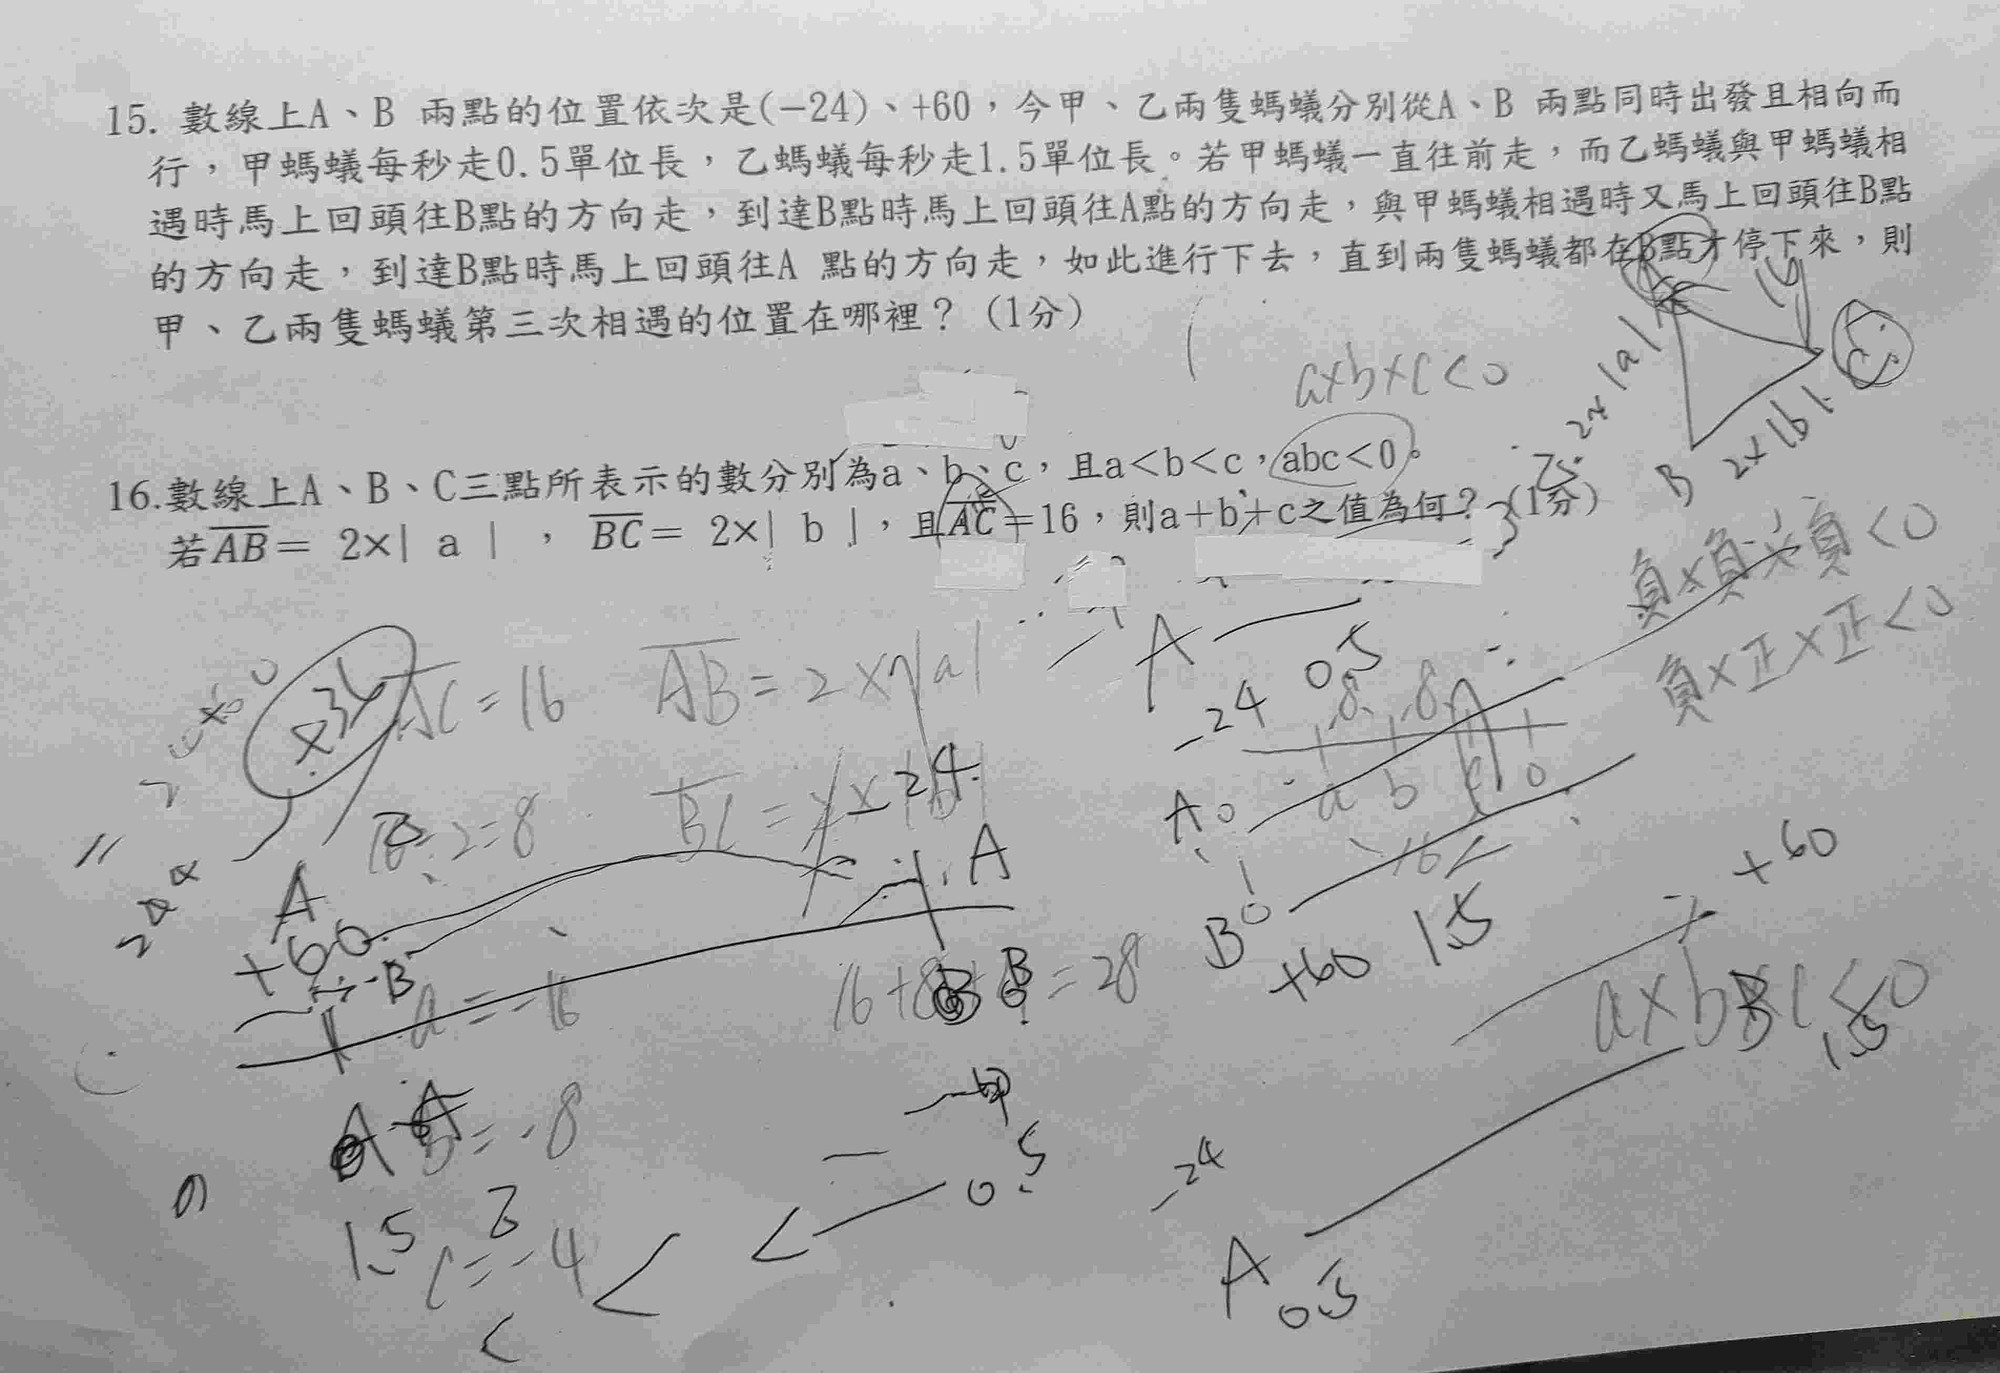 15. 數線上A、B 兩點的位置依次是(－24)、+60，今甲、乙兩隻螞蟻分別從A、B 兩點同時出發且相向而
行，甲螞蟻每秒走0.5單位長，乙螞蟻每秒走1.5單位長。若甲螞蟻一直往前走，而乙螞蟻與甲螞蟻相
遇時馬上回頭往B點的方向走，到達B點時馬上回頭往A點的方向走，與甲螞蟻相遇時又馬上回頭往B點
的方向走，到達B點時馬上回頭往A 點的方向走，如此進行下去，直到兩隻螞蟻都在B點才停下來，則
甲、乙兩隻螞蟻第三次相遇的位置在哪裡？（1分）
a×b×c<0
2×|a|
B 2×|b|
16.數線上A、B、C三點所表示的數分別為a、b、c，且a<b<c，abc<0。
若AB= 2×| a | ， BC= 2×| b |，且AC=16，則a+b+c之值為何？（1分）
負×負×負<0
負×正×正<0
AC=16 AB=2×|a|
A
-24 0.5
8 8
a b c 0
16÷2=8
A
+60
B
A
B
+60 1.5
+60
a=-16
=28
a×b×c<0
1.5
b=-8
1.5
c=-4
0.5
-24
A
0.5